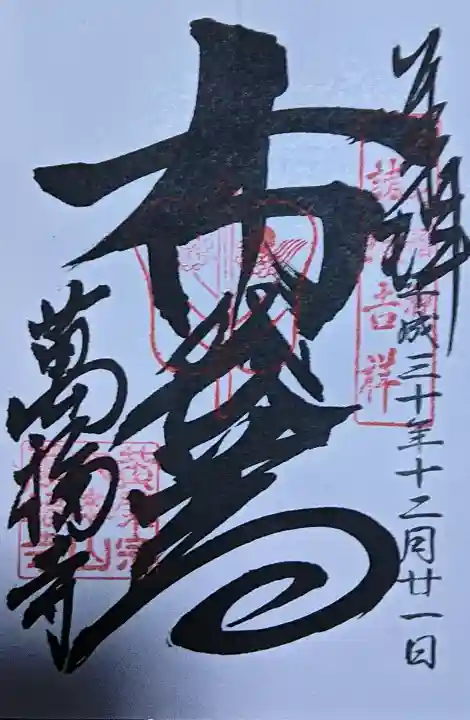 奉拝
平成三十年十二月廿一日
吉祥
布袋
萬福寺
黄檗宗